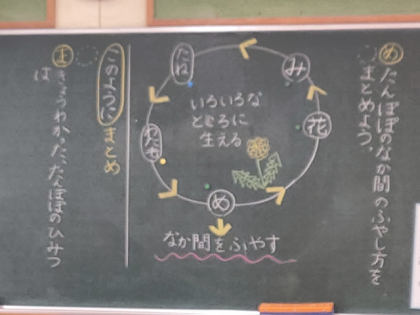 め たんぽぽのなか間のふやし方を
まとめよう。
み
花
め
わた毛
たね
いろいろな
ところに
生える
なか間をふやす
このように まとめ
ま きょうわかった、たんぽぽのひみつ
は